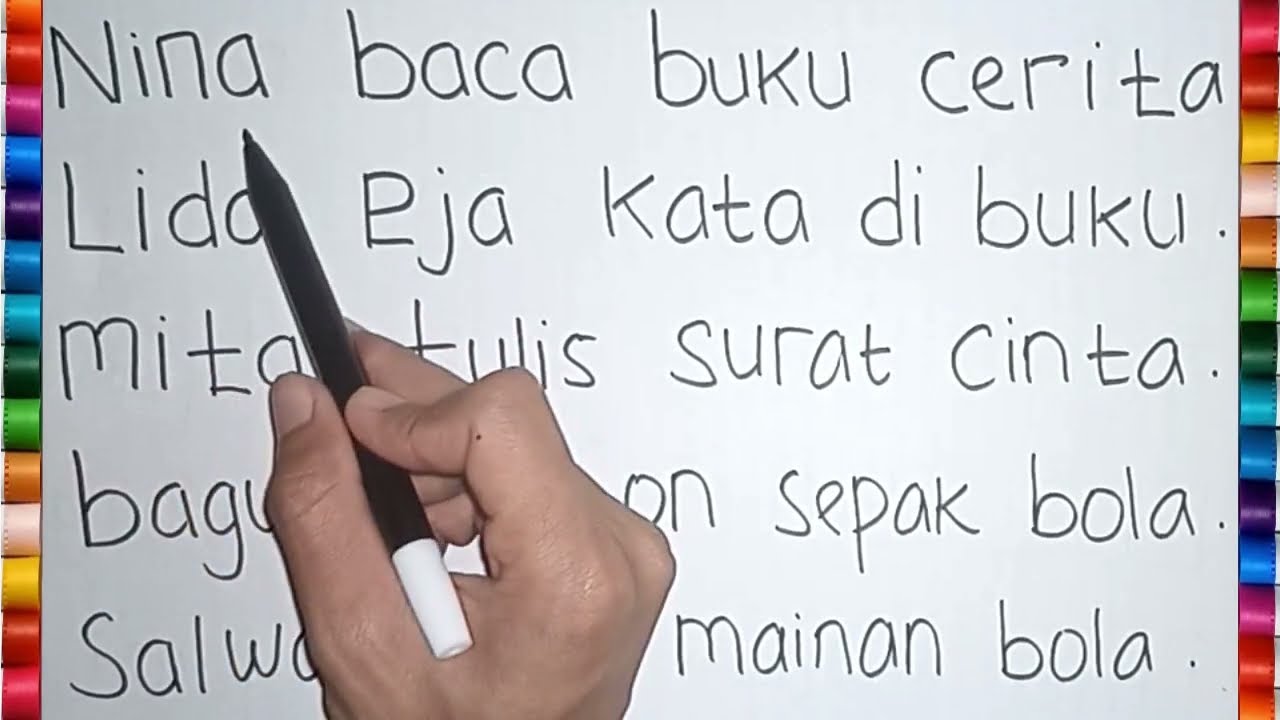 Nina baca buku cerita
Lida Eja Kata di buku.
mita tulis surat cinta.
sepak bola.
mainan bola.